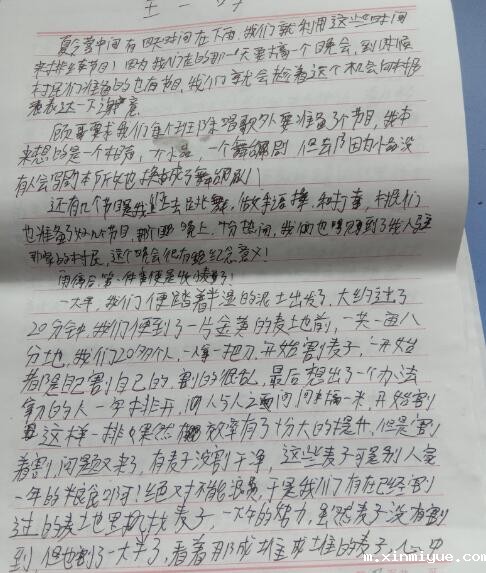 夏令营中间有四天时间在下雨,我们就利用这些时间
来排练节目!因为我们走的那一天要搞一个晚会,到时候
村民们准备的也有节目,我们就会趁着这个机会向村民
表达一下谢意
要求我们每个班除唱歌外要准备3个节目,我本
来想的是一个相声,一个小品,一个舞蹈剧 但会因为小品没
有人会写剧本所以也换成了舞蹈剧!
还有几个节目是我们去跳舞,做手语操,和打拳,村民们
也准备了节目 那个晚上,十分热闹,我们也感受到了
那里的村民,这个晚会很有纪念意义!
雨停后第一件事便是收麦子!
一大早,我们便踏着半湿的泥土出发了,大约走了
20分钟,我们便到了一片金黄的麦地前,一共一亩八
分地,我们20多个人,一人拿一把刀,开始割麦子,一开始
都是自己割自己的,割的很乱,最后想出了一个办法
家的人一字排开,人与人之间间隔一米,开始割
这样一排,果然效率有了十分大的提升,但是割
着割问题又来了,有麦子没割干净,这些麦子可是别人家
一年的粮食啊!绝对不能浪费,于是我们有在已经割
过的麦地里找麦子,一大早的努力,虽然麦子没有割
到,但也割了一大半了,看着那成堆成堆的麦子,心中
m.xinmiyue.com